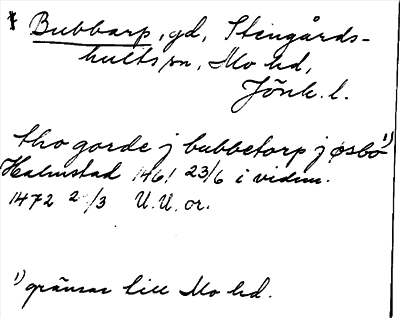 * Bubbarp, gd, Stengårds-
hults sn, Mo hd,
Jönk. l.
tho gorde j bubbetorp j øsbo 1)
Halmstad 1461 23/6 i vidim.
1472 2/3 U.U. or.
1) gränsar till Mo hd.